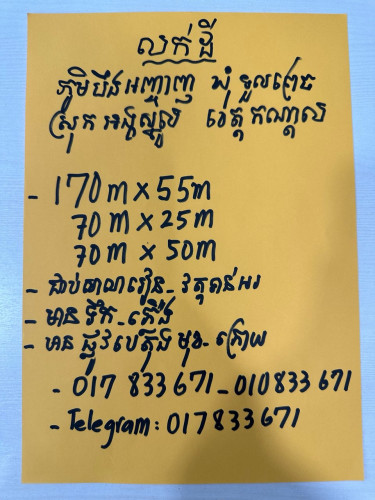 លក់ដី
ភូមិបឹងអញ្ចាញ ឃុំ ទួលព្រេច
ស្រុក អង្គស្នួល ខេត្ត កណ្តាល
- 170m x 55m
70m x 25m
70m x 50m
- ជាប់សាលារៀន - វត្ត
- មាន ទឹក - ភ្លើង
- មាន ផ្លូវបេតុង មុខ - ក្រោយ
- 017 833 671 - 010 833 671
- Telegram: 017 833 671